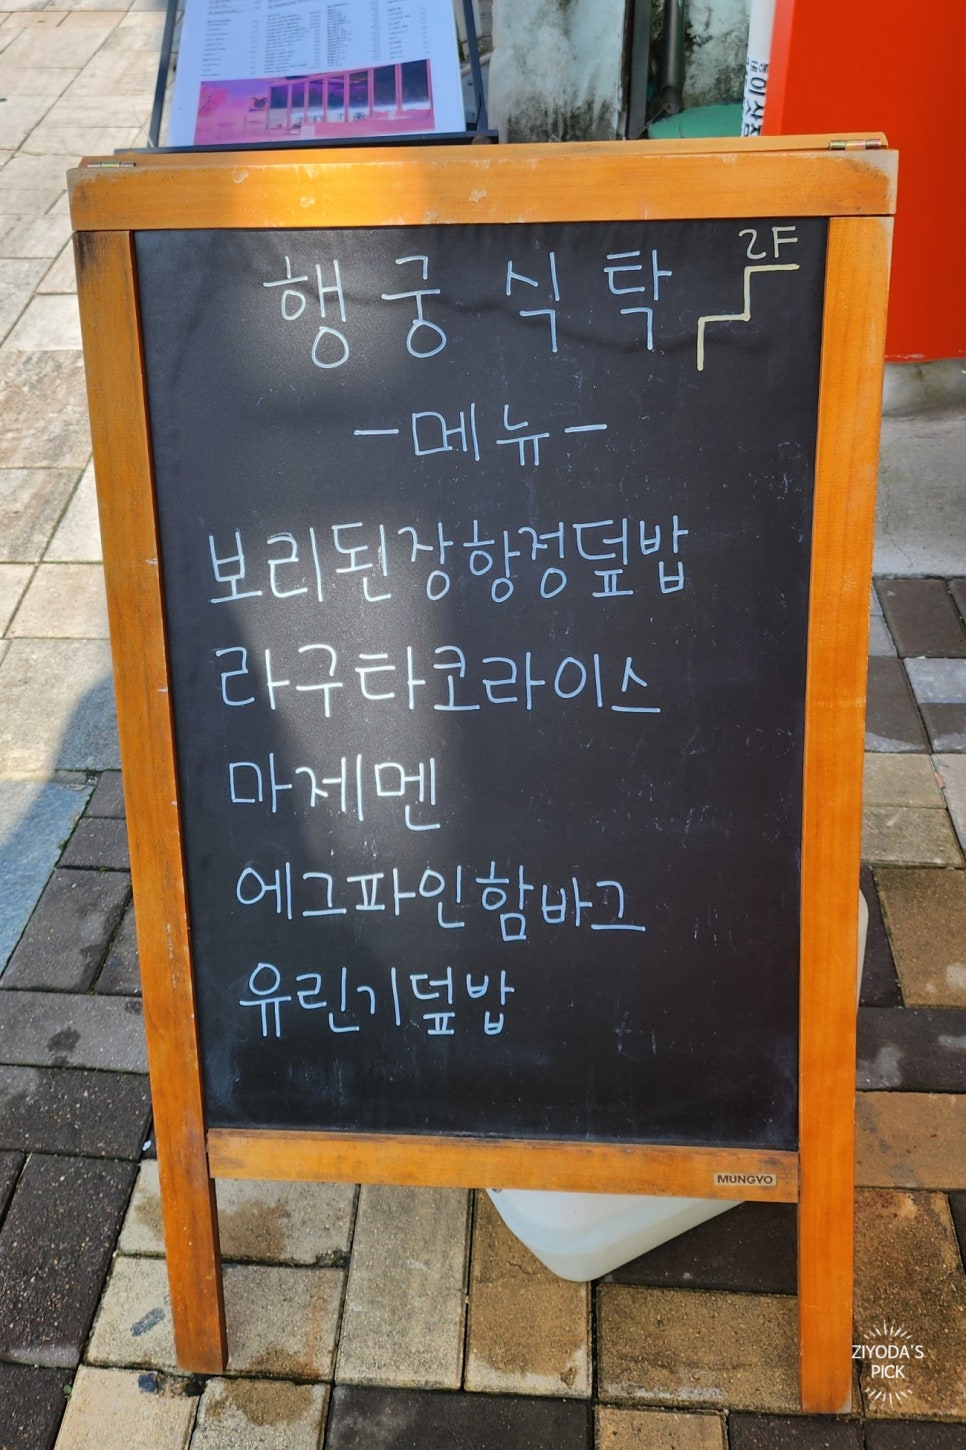 행궁식탁
2F
-메뉴-
보리된장항정덮밥
라구타코라이스
마제멘
에그파인함바그
유린기덮밥
MUNGYO
ZIYODA'S
PICK